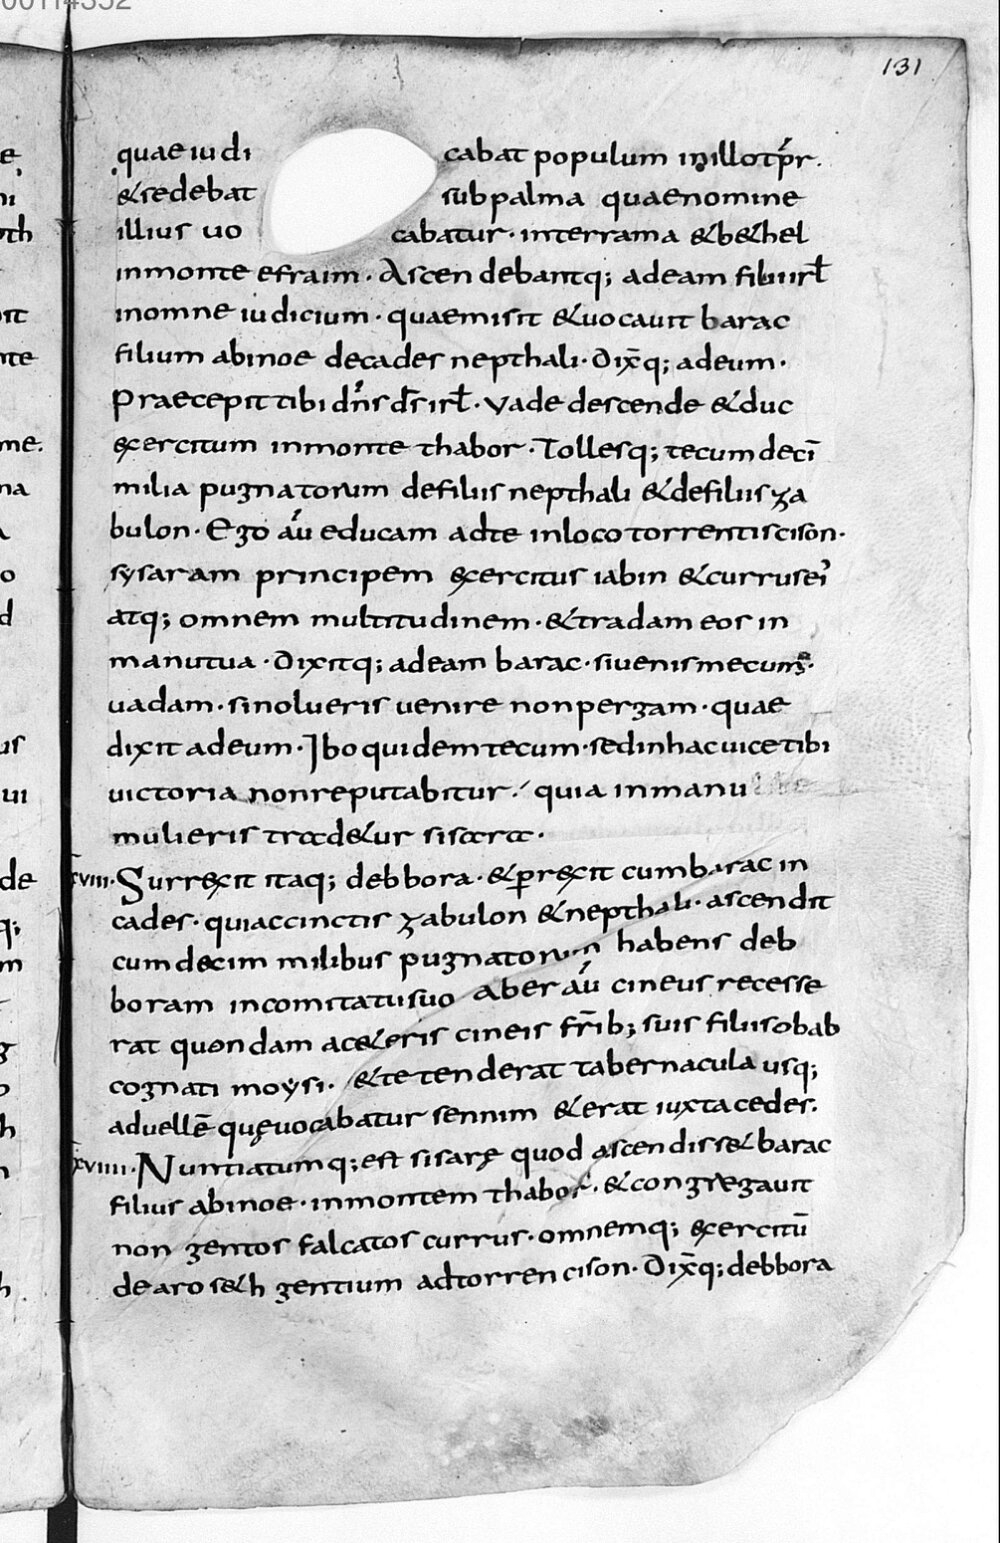 00114352
131
quae iudi cabat populum inillotp̄r.
&sedebat subpalma quaenomine
illius uo cabatur· interrama &b&hel
inmonte efraim· Ascendebantq; adeam filiiisrł
inomne iudicium· quaemisit &uocauit barac
filium abinoe decades nepthali· Dix̄q; adeum·
Praecepit tibi dn̄s ds̄ isrł· Vade descende &duc
exercitum inmonte thabor· Tollesq; tecum decī
milia pugnatorum defiliis nepthali &defiliis za
bulon· Ego aū educam adte inloco torrentis cison·
sysaram principem exercitus iabin &currus ei'
atq; omnem multitudinem· &tradam eos in
manu tua· Dixitq; adeam barac· siuenis mecum·
uadam· sinolueris uenire nonpergam· quae
dixit adeum· Ibo quidem tecum· sedinhac uice tibi
uictoria nonreputabitur· quia inmanu
mulieris trad&ur sisara·
xviii· Surrexit itaq; debbora· &perrexit cumbarac in
cades· quiaccinctis zabulon &nepthali· ascendit
cum decim milibus pugnatorum habens deb
boram incomitatu suo Aber aū cineus recesse
rat quondam aceteris cineis fr̄ib; suis filiis obab
cognati moysi· &tetenderat tabernacula usq;
aduellē quęuocabatur sennim &erat iuxta cedes.
xviiii· Nuntiatumq; est sisarę quod ascendiss& barac
filius abinoe· inmontem thabor· &congregauit
non gentos falcatos currus· omnemq; exercitū
dearos&h gentium adtorren cison· Dix̄q; debbora